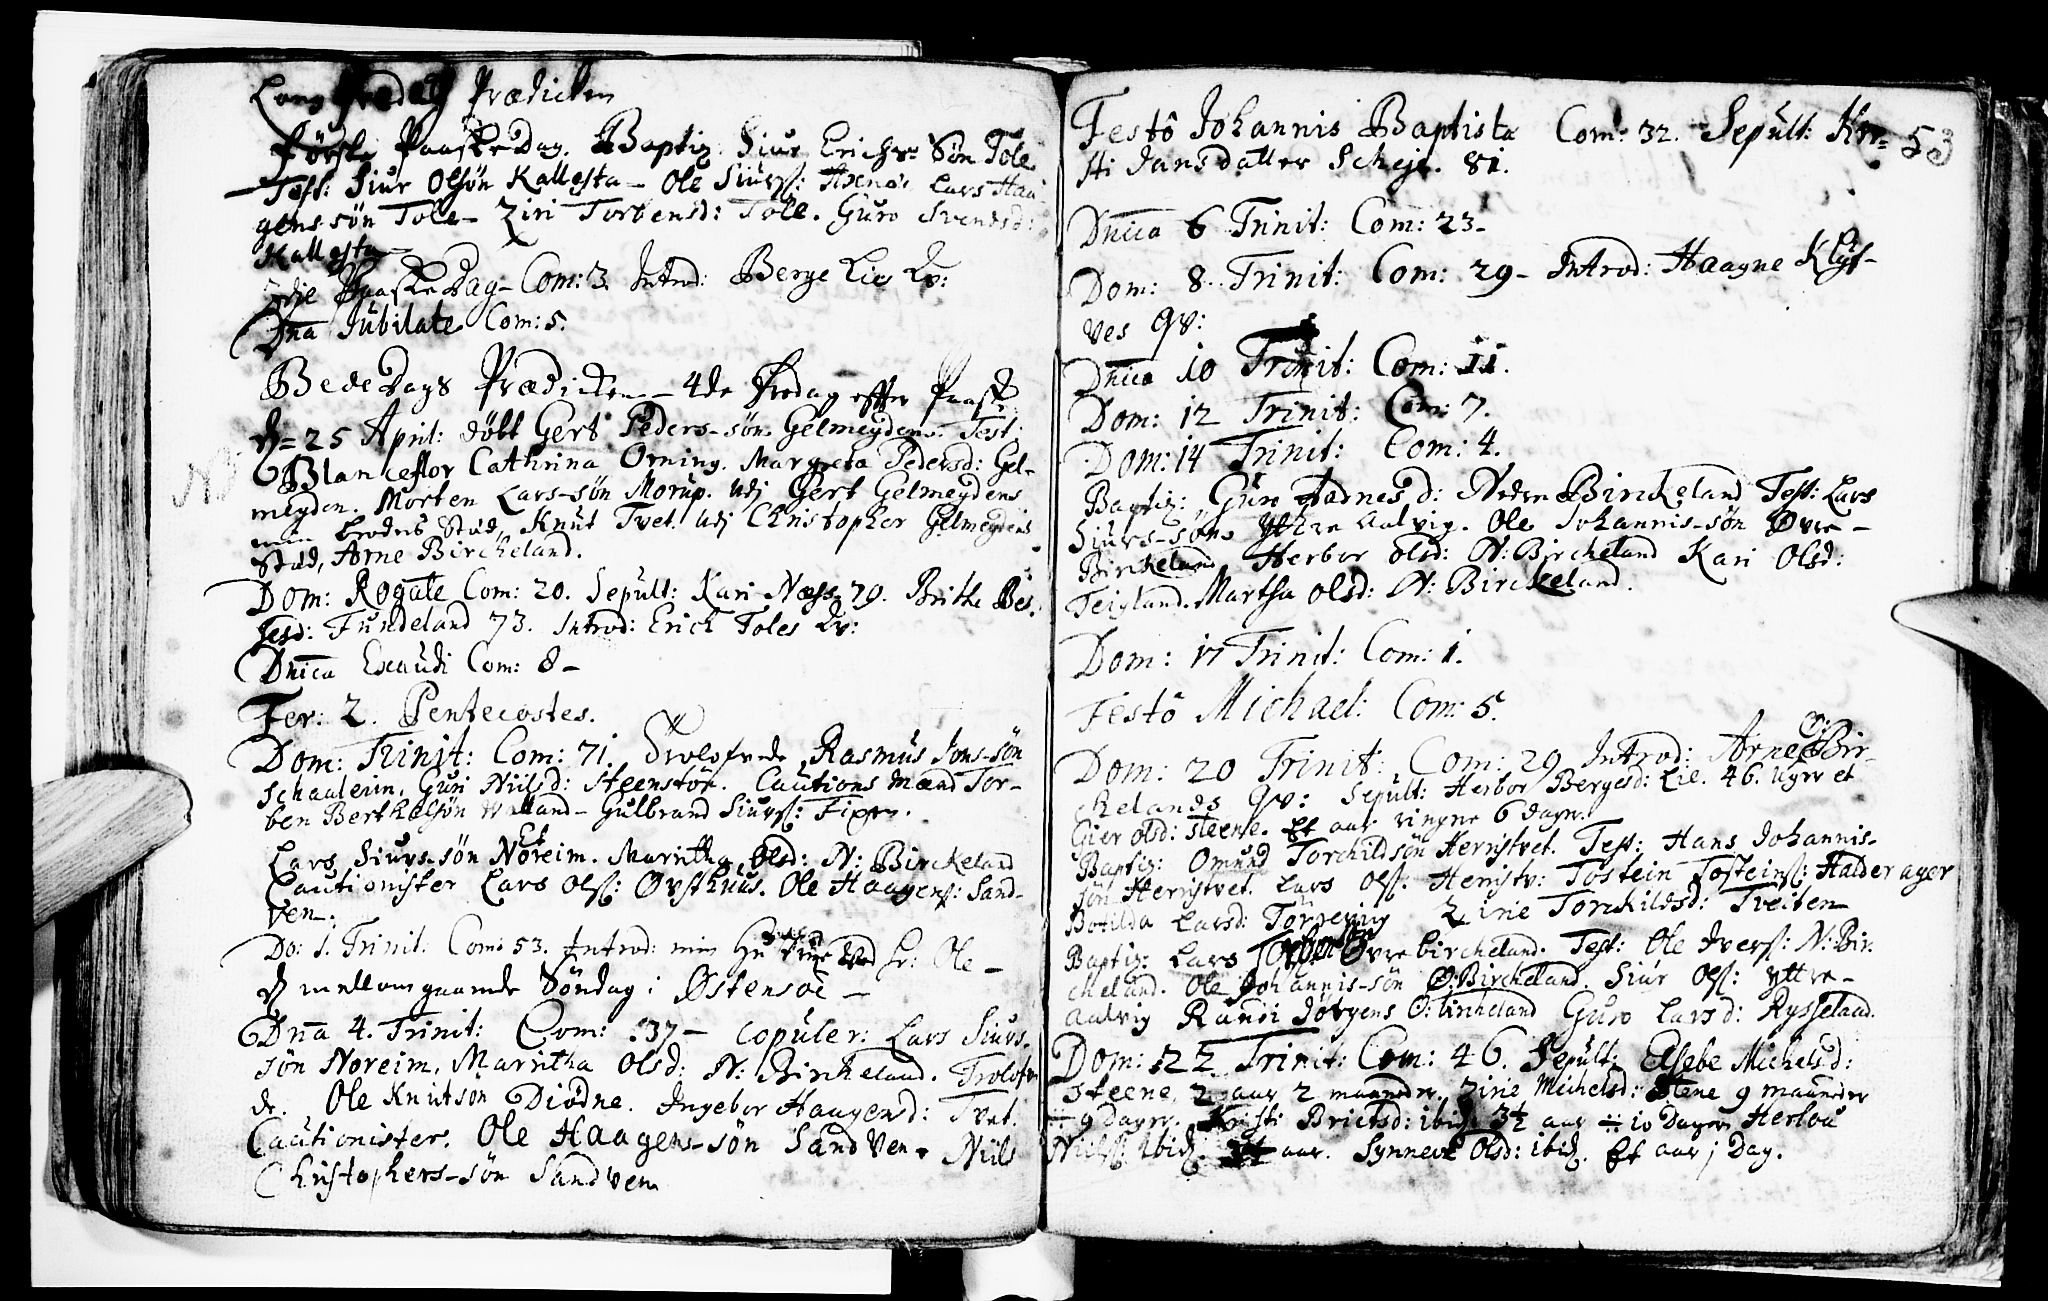 Lang Fredag Prædicken
Første PaaskeDag. Baptiz. Siur Erichs Søn Tole
Test: Siur Olsøn Kallesta - Ole Siurs: Lars Haa-
gens søn Tole - Ziri Torbensd: Tole. Guro Svendsd:
Kallesta -
3die PaaskeDag - Com: 3. Introd: Berge Lie Qv:
Dna Jubilate Com: 5.
BedeDags Prædicken - 4de Fredag effter Paaske
d = 25 April: døbt Gert Peders-søn Gelmeyden. Test:
NB
Blanceflor Cathrina Orning. Margreta Pedersd: Gel-
meyden. Morten Lars-søn Morup. udj Gert Gelmeydens
min broders Stæd, Knut Tvet udj Christopher Gelmeydens
Stæd, Arne Bircheland.
Dom: Rogate Com: 20. Sepult: Kari Næss 79. Brithe Bes-
sesd: Fundeland 73. Introd: Erick Toles Qv:
Dnica Exaudi Com: 8 -
Fer: 2. Pentecostes.
Dom: Trinit: Com: 71. Trolofvede Rasmus Jons-søn
Schaaleim, Guri Niilsd: Steenstøe. Cautions Mænd Tor-
ben Berthelsøn - Gulbrand Siurs: Fixen.
Et
Lars Siurs-søn Noreim. Maritha Olsd: N: Birckeland
Cautionister Lars Ols: Øvsthuus. Ole Haagens: Sand-
ven -.
Do: 1. Trinit: Com: 53. Introd: min Hustrue ved Hr: Ole -
d mellomgaaende Søndag i Østensøe -
Dna 4. Trinit: Com: 37 - Copuler: Lars Siurs-
søn Noreim, Maritha Olsd: N: Birckeland. Trolofve-
de. Ole Knutsøn Diødne. Ingebor Haagensd: Tvet.
Cautionister. Ole Haagens-søn Sandven. Niils
Christophers-søn Sandven
53
Festô Johannis Baptista Com: 32. Sepult: Kri-
sti Jansdatter Scheje. 81.
Dnica 6 Trinit: Com: 23 -
Dom: 8. Trinit: Com: 29 - Introd: Haagne Klyf-
ves qv:
Dnica 10 Trinit: Com: 11.
Dom: 12 Trinit: Com: 7.
Dom: 14 Trinit: Com: 4.
Baptiz: Guro d: Neden Birckeland Test: Lars
Siurs-søn Yttre Aalvig. Ole Johannis-søn Øvre -
Birckeland Herbor Olsd: N: Birckeland Kari Olsd:
Teigland. Martha Olsd: N: Birckeland.
Dom: 17 Trinit: Com: 1.
Festô Michael: Com: 5.
Dom: 20 Trinit: Com: 29 Introd: Arne Ø: Bir-
ckelands qv: Sepult: Herbor Bergesd: Lie. 46. uger et
Gier Olsd: Steene. Et aar ringre 6 dager.
Baptiz: Omund Torchildsøn Herristvet. Test: Hans Johannis-
søn Herristvet. Lars Ols: Herristv: Tostein Tosteins: Halderager
Botilda Larsd: Zirie Torckildsd: Tveiten
Baptiz: Lars Øvre birckeland. Test: Ole Ivers: N: Bir-
cheland. Ole Johannis-søn Ø: Bircheland. Siur Ols: yttre -
Aalvig Randi Jørgens Ø: birckeland Guro Larsd: Rysseland.
Dom: 22 Trinit: Com: 46. Sepult: Elsebe Michelsd:
Steene, 2 aar 2 maaneder. Zirie Michelsd: Stene 9 maaneder
÷ 9 Dager. Kristi Brietsd: ibid: 3½ aar ÷ 10 Dager Herlou
Niils: Ibid. aar. Synneve Olsd: ibid. Et aar j Dag.